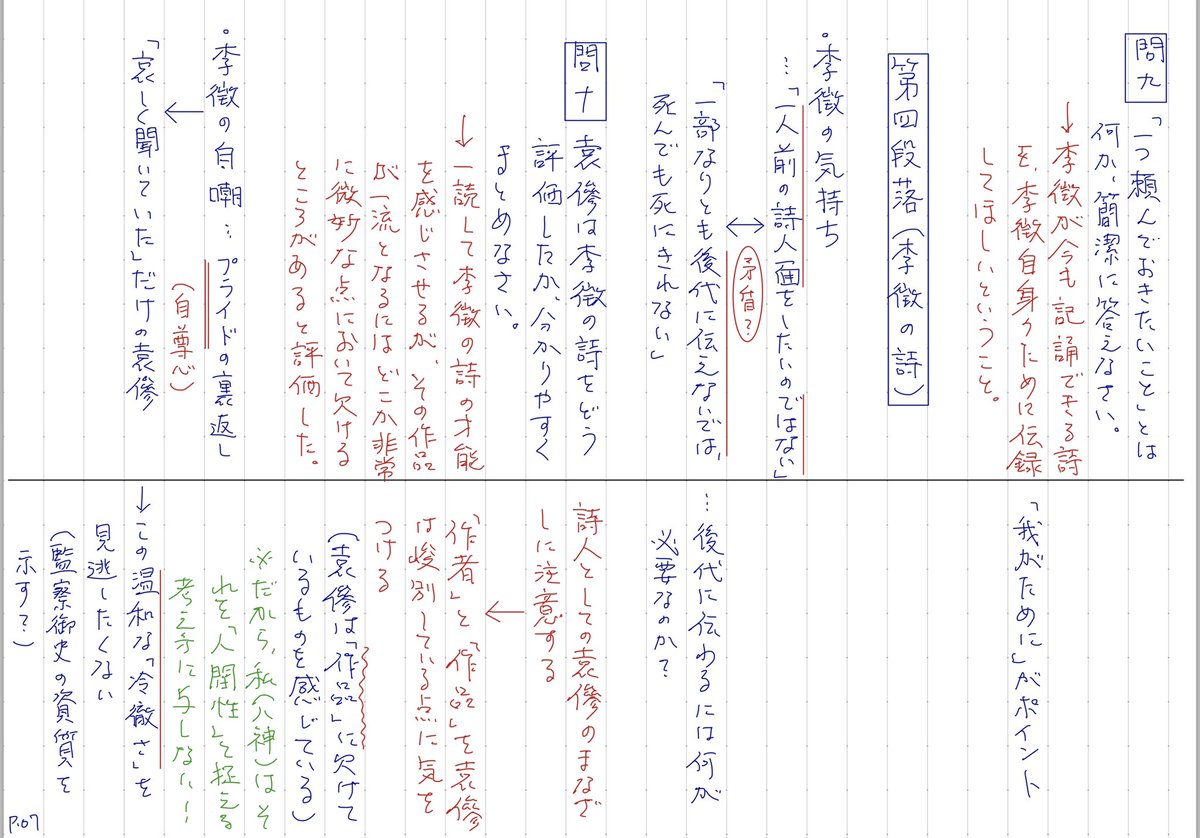 問九
「一つ頼んでおきたいこと」とは
何か、簡潔に答えなさい。
→李徴が今も記誦できる詩
を、李徴自身のために伝録
してほしいということ。
「我がために」がポイント
第四段落(李徴の詩)
・李徴の気持ち
…「一人前の詩人面をしたいのではない」
矛盾?
「一部なりとも後代に伝えないでは、
死んでも死にきれない」
…後代に伝わるには何が
必要なのか?
問十
袁傪は李徴の詩をどう
評価したか、分かりやすく
まとめなさい。
→一読して李徴の詩の才能
を感じさせるが、その作品
が一流となるにはどこか非常
に微妙な点において欠ける
ところがあると評価した。
詩人としての袁傪のまなざ
しに注意する
「作者」と「作品」を袁傪
は峻別している点に気を
つける
(袁傪は「作品」に欠けて
いるものを感じている)
※だから、私(八神)はそ
れを「人間性」と捉える
考え方に与しない!
・李徴の自嘲…プライドの裏返し
(自尊心)
「哀しく聞いていた」だけの袁傪
→この温和な「冷徹さ」を
見逃したくない
(監察御史の資質を
示す?)
P.07